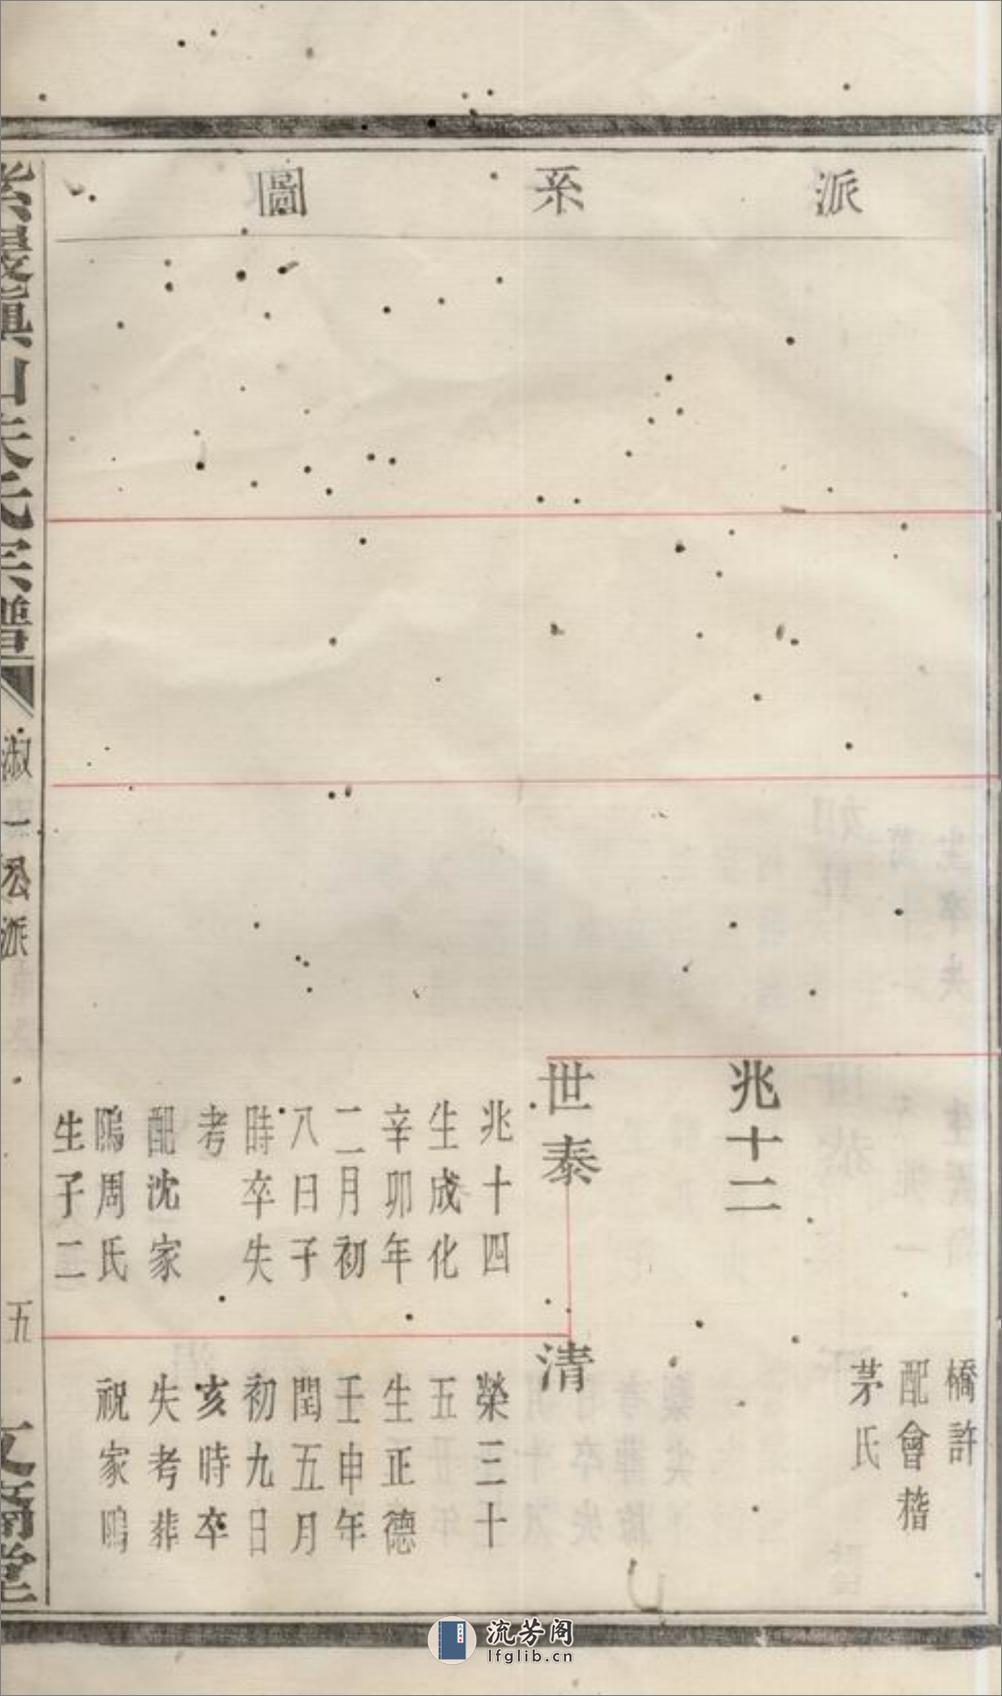 派系圖
橋許
配會稽
茅氏
兆十二
世泰
兆十四
生成化
辛卯年
二月初
八日子
時卒失
考
配沈家
鴟周氏
生子二
清
榮三十
五
生正德
壬申年
閏五月
初九日
亥時卒
失考葬
祝家鴟
山
氏宗譜
淑一公派
五
堂
流芳阁
lfglib.cn